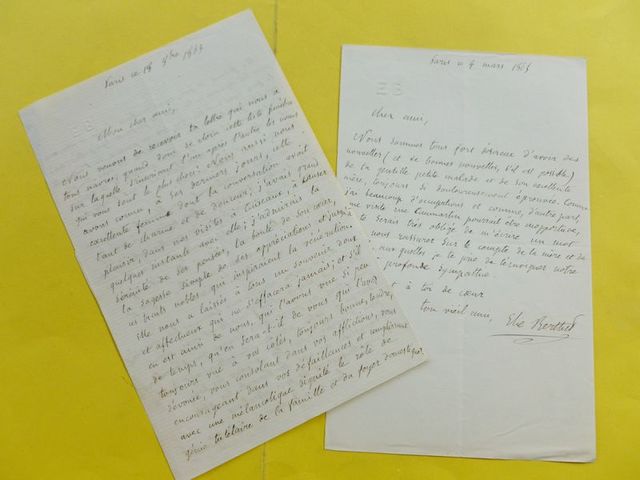 Paris ce 18 9bre 1863
Mon cher ami,
Nous venons de recevoir ta lettre qui nous a
tous navrés; quand donc se clora cette liste funèbre
sur laquelle s'inscrivent l'un après l'autre les noms
qui vous sont le plus chers? Nous aussi nous
avons connu, à ses derniers jours, cette
excellente femme dont la conversation avait
tant de charme et de douceur; j'avais grand
plaisir, dans nos visites à à causer
quelques instants avec elle; j'admirais la
sérénité de ses pensées, la bonté de son cœur,
la sagesse simple de ses appréciations et jusqu'à
ses traits nobles qui inspiraient la vénération.
Elle nous a laissés à tous un souvenir doux
et affectueux qui ne s'effacera jamais; et s'il
en est ainsi de nous, qui l'avons vue si peu
de temps, qu'en sera-t-il de vous qui l'avez
toujours vue à vos côtés, toujours bonne, tendre,
dévouée, vous consolant dans vos afflictions, vous
encourageant dans vos défaillances et remplissant
avec une mélancolique dignité le rôle de
génie tutélaire de la famille et du foyer domestique
Paris ce 4 mars
Cher ami,
Nous sommes tous fort désireux d'avoir des
nouvelles (et de bonnes nouvelles, s'il est possible)
de la gentille petite malade et de son excellente
mère, toujours si douloureusement éprouvée. Comme
j'ai beaucoup d'occupations et comme, d'autre part,
une visite rue Caumartin pourrait être inopportune,
te serais très obligé de m'écrire un mot
nous rassurer sur le compte de la mère et de
auxquelles je te prie de témoigner notre
profonde sympathie
à toi de cœur
ton vieil ami,
Elie Berthet